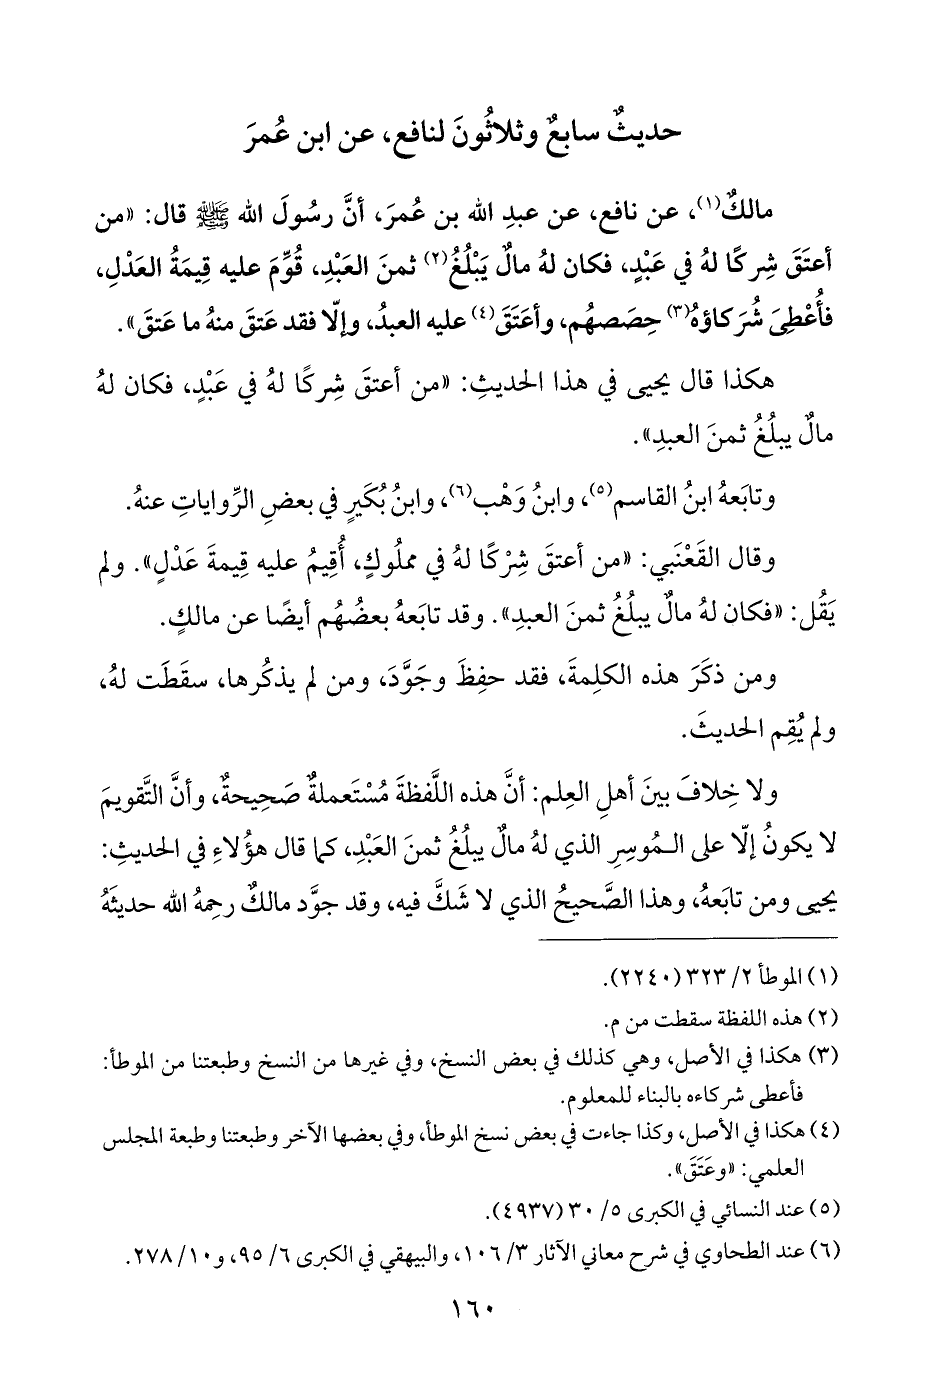 حديثٌ سابعٌ وثلاثُونَ لنافع، عن ابن عُمرَ
مالكٌ(١)، عن نافع، عن عبدِ الله بن عُمرَ، أنَّ رسُولَ الله ﷺ قال: «من
أعتَقَ شِركًا لهُ في عَبْدٍ، فكان لهُ مالٌ يَبْلُغُ(٢) ثمنَ العَبْدِ، قُوِّمَ عليه قِيمَةُ العَدْلِ،
فأُعْطِىَ شُرَكاؤهُ(٣) حِصَصهُم، وأعَتَقَ(٤) عليه العبدُ، وإلّا فقد عَتقَ منهُ ما عَتقَ».
هكذا قال يحيى في هذا الحديثِ: «من أعتقَ شِركًا لهُ في عَبْدٍ، فكان لهُ
مالٌ يبلُغُ ثمنَ العبدِ».
وتابَعهُ ابنُ القاسم(٥)، وابنُ وَهْب(٦)، وابنُ بُكَيرٍ في بعضِ الرِّواياتِ عنهُ.
وقال القَعْنَبي: «من أعتقَ شِرْكًا لهُ في مملُوكٍ، أُقِيمُ عليه قِيمةَ عَدْلٍ». ولم
يَقُل: «فكان لهُ مالٌ يبلُغُ ثمنَ العبدِ». وقد تابَعهُ بعضُهُم أيضًا عن مالكٍ.
ومن ذكَرَ هذه الكلِمةَ، فقد حفِظَ وجَوَّدَ، ومن لم يذكُرها، سقَطَت لهُ،
ولم يُقِم الحديثَ.
ولا خِلافَ بينَ أهلِ العِلم: أنَّ هذه اللَّفظةَ مُسْتَعملةٌ صَحِيحةٌ، وأنَّ التَّقويمَ
لا يكونُ إلّا على المُوسِرِ الذي لهُ مالٌ يبلُغُ ثمنَ العَبْدِ، كما قال هؤُلاءِ في الحديثِ:
يحيى ومن تابَعهُ، وهذا الصَّحيحُ الذي لا شَكَّ فيه، وقد جوَّد مالكٌ رحِمهُ الله حديثَهُ
(١) الموطأ ٢/ ٣٢٣ (٢٢٤٠).
(٢) هذه اللفظة سقطت من م.
(٣) هكذا في الأصل، وهي كذلك في بعض النسخ، وفي غيرها من النسخ وطبعتنا من الموطأ:
فأعطى شركاءه بالبناء للمعلوم.
(٤) هكذا في الأصل، وكذا جاءت في بعض نسخ الموطأ، وفي بعضها الآخر وطبعتنا وطبعة المجلس
العلمي: «وعَتَقَ».
(٥) عند النسائي في الكبرى ٥/ ٣٠ (٤٩٣٧).
(٦) عند الطحاوي في شرح معاني الآثار ٣/ ١٠٦، والبيهقي في الكبرى ٦/ ٩٥، و١٠/ ٢٧٨.
١٦٠